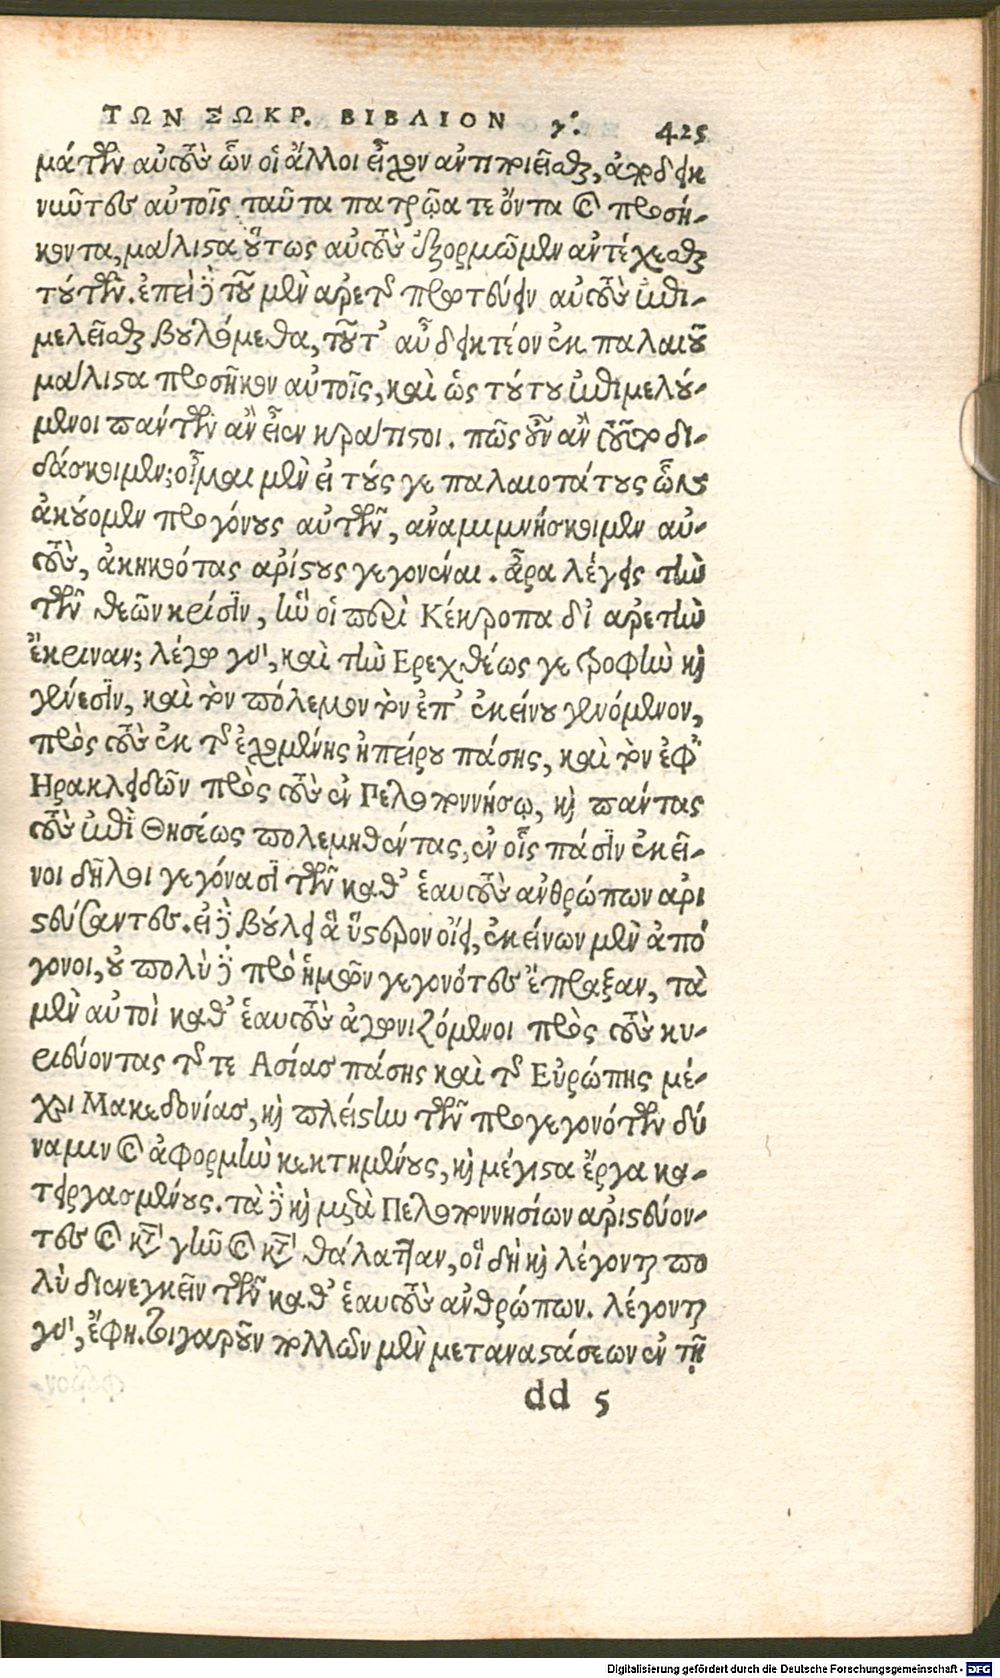 ΤΩΝ ΣΩΚΡ. ΒΙΒΛΙΟΝ γ'. 425
μάτων αὐτοὺς ὧν οἱ ἄλλοι εἶχον ἀντιποιεῖσθαι, ἀποδεικ
νῦντες αὐτοῖς ταῦτα πατρῷα τε ὄντα καὶ προσή-
κοντα, μάλιστα οὕτως αὐτοὺς ἐξορμῶμεν ἀντέχεσθαι
τούτων. ἐπεὶ δὲ τοῦ μὲν ἀρετῆς πρωτεύειν αὐτοὺς ἐπι-
μελεῖσθαι βουλόμεθα, τοῦτ' αὖ δεικτέον ἐκ παλαιοῦ
μάλιστα προσῆκον αὐτοῖς, καὶ ὡς τούτου ἐπιμελού-
μενοι πάντων ἂν εἶεν κράτιστοι. πῶς οὖν ἂν τοῦτο δι-
δάσκοιμεν; οἶμαι μὲν εἰ τούς γε παλαιοτάτους ὧν
ἀκούομεν προγόνους αὐτῶν, ἀναμιμνήσκοιμεν αὐ-
τοὺς, ἀκηκοότας ἀρίστους γεγονέναι. ἆρα λέγεις τὴν
τῶν θεῶν κρίσιν, ἣν οἱ περὶ Κέκροπα δι' ἀρετὴν
ἔκριναν; λέγω γὰρ, καὶ τὴν Ερεχθέως γε τροφὴν καὶ
γένεσιν, καὶ τὸν πόλεμον τὸν ἐπ' ἐκείνου γενόμενον,
πρὸς τοὺς ἐκ τῆς ἐχομένης ἠπείρου πάσης, καὶ τὸν ἐφ'
Ηρακλειδῶν πρὸς τοὺς ἐν Πελοποννήσῳ, καὶ πάντας
τοὺς ἐπὶ Θησέως πολεμηθέντας, ἐν οἷς πάσιν ἐκεῖ-
νοι δῆλοι γεγόνασι τῶν καθ' ἑαυτοὺς ἀνθρώπων ἀρι
στεύσαντες. εἰ δὲ βούλει ἃ ὕστερον οἵ, ἐκείνων μὲν ἀπό
γονοι, οὐ πολὺ δὲ πρὸ ἡμῶν γεγονότες ἔπραξαν, τὰ
μὲν αὐτοὶ καθ' ἑαυτοὺς ἀγωνιζόμενοι πρὸς τοὺς κυ-
ριεύοντας τῆς τε Ασίας πάσης καὶ τῆς Εὐρώπης μέ-
χρι Μακεδονίας, καὶ πλείστην τῶν προγεγονότων δύ
ναμιν καὶ ἀφορμὴν κεκτημένους, καὶ μέγιστα ἔργα κα-
τειργασμένους. τὰ δὲ καὶ μετὰ Πελοποννησίων ἀριστεύον-
τες καὶ κατὰ γῆν καὶ κατὰ θάλατταν, οἳ δὴ καὶ λέγονται πο
λὺ διενεγκεῖν τῶν καθ' ἑαυτοὺς ἀνθρώπων. λέγονται
γὰρ, ἔφη. τοιγαροῦν πολλῶν μὲν μεταναστάσεων ἐν τῇ
dd 5
Digitalisierung gefördert durch die Deutsche Forschungsgemeinschaft - DFG